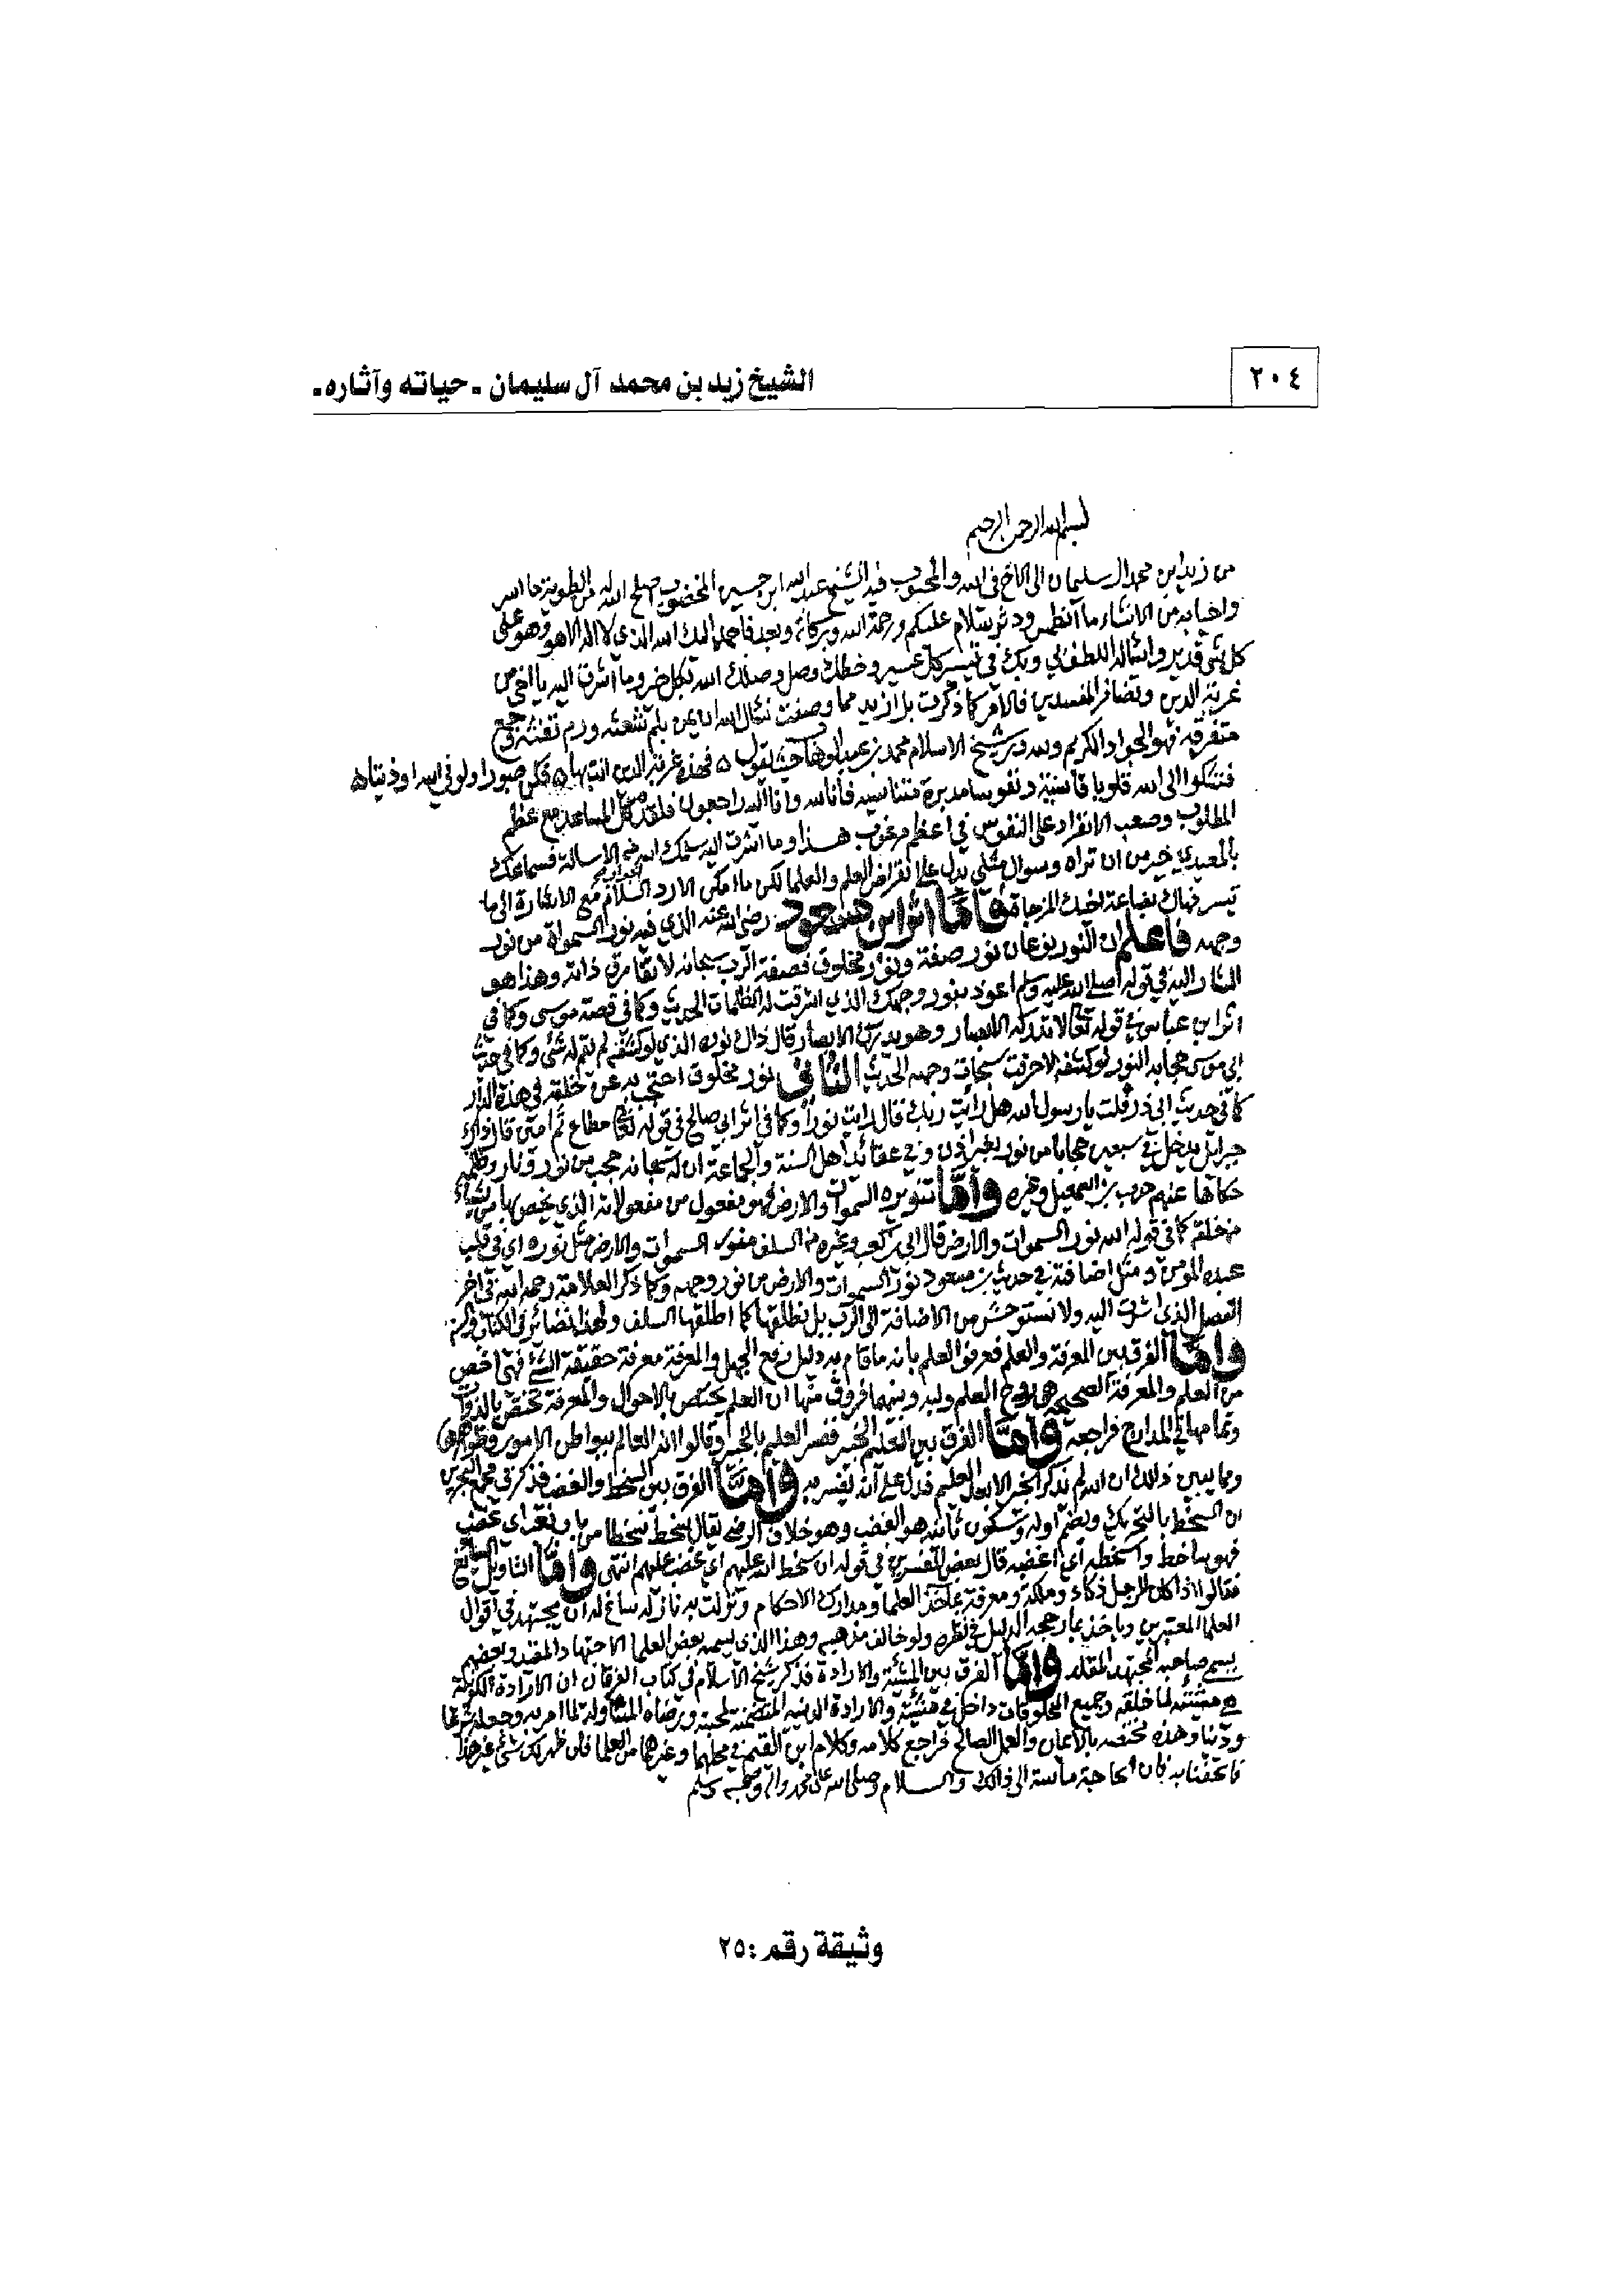 ٢٠٤
الشيخ زيد بن محمد آل سليمان - حياته وآثاره -
بسم الله الرحمن الرحيم
من زيد ابن محمد ال سليمان الى الاخ في الله والمحبوب فيه الشيخ عبدالله ابن حسين المخضوب اصلح الله له من الطوية ما اسر
واحيا به من الانشاء ما انطمس ودثر سلام عليكم ورحمة الله وبركاته وبعد فاحمد اليك الله الذي لا اله الا هو وهو على
كل شي قدير واسئاله اللطف بي وبك في تيسير كل عسير وخطك وصل وصلك الله بكل خير وما اشرت اليه يا اخي من
غربة الدين وتضافر المفسدين فالامر كما ذكرت بل ازيد مما وصفت نسال الله ان يمن بلم شعثه ورم تفثه وجمع
متفرقه فهو الجواد الكريم ولله در شيخ الاسلام محمد بن عبدالوهاب حيث يقول ه فهذه غربة الدين انتبها ه فكن صبورا ولو في الله اوذيتا ه
فنشكوا الى الله قلوبا قاسية ونفوسا مدبرة متناسيه فانا لله وانا اليه راجعون فلقد كل المساعد مع عظم
المطلوب وصعب الانفراد على النفوس في اعظم مرغوب هذا وما اشرت اليه سلمك الله من الاسالة فسماعك
بالمعيدي خير من ان تراه وسوال مثلي يدل على انقراض العلم والعلما لكن ما امكن الا رد السلام مع الاشارة الى ما
تيسر فهاك بضاعة اخيك المزجاة فأما اثر ابن مسعود رضي الله عنه الذي فيه نور السموات من نور
وجهه فاعلم ان النور نوعان نور صفة ونور مخلوق فصفة الرب سبحانه لا تفارق ذاته وهذا هو
المشار اليه في قوله صلى الله عليه وسلم اعوذ بنور وجهك الذي اشرقت له الظلمات الحديث وكما في قصة موسى وكما في
اثر ابن عباس في قوله تعالى لا تدركه الابصار وهو يدرك الابصار قال ذاك نوره الذي لو كشفه لم يقم له شي وكما في حديث
ابي موسى حجابه النور لو كشفه لاحرقت سبحات وجهه الحديث الثاني نور مخلوق احتجب به عن خلقه في هذه الدار
كما في حديث ابي ذر قلت يا رسول الله هل رايت ربك فقال رايت نورا وكما في اثر ابي صالح في قوله تعالى مطاع ثم امين قال
جبرائيل يدخل في سبعين حجابا من نور بغير اذن وفي عقائد اهل السنة والجماعة ان له سبحانه حجب من نور ونار وظلمه
حكاها عنهم حرب بن اسمعيل وغيره وأما تنويره السموات والارض فهو مفعول من مفعولاته الذي يخص بها من يشاء
من خلقه كما في قوله الله نور السموات والارض قال ابي بن كعب وغيره من السلف منور السموات والارض مثل نوره اي في قلب
عبده المومن ومثل اضافته في حديث بن مسعود نور السموات والارض من نور وجهه وكما ذكر العلامة رحمه الله في اخر
الفصل الذي اشرت اليه ولا نستوحش من الاضافة الى الرب بل نطلقها كما اطلقها السلف ولهذا نضائر في الكتاب والسنه
وأما الفرق بين المعرفة والعلم فعرفوا العلم بانه ما قام به دليل ورفع الجهل والمعرفة معرفة حقيقة الشي فهي اخص
من العلم والمعرفة الصحيحه هي روح العلم ولبه وبينهما فروق منها ان العلم يختص بالاحوال والمعرفة تختص بالذوات
وتمامها في المدارج فراجعه وأما الفرق بين العليم الخبير ففسر العليم بالخبير وقالوا انه العالم ببواطن الامور وظواهرها
ومما يبين ذالك ان الله لم يذكر الخبير الا بعد العليم فدل على انه تفسير به وأما الفرق بين السخط والغضب فذكر في مجمع البحرين
ان السخط بالتحريك وبضم اوله وسكون ثانيه هو الغضب وهو خلاف الرضى يقال سخط سخطا من باب تعب اي غضب
فهو ساخط واسخطه اي اغضبه قال بعض المفسرين في قوله ان سخط الله عليهم اي غضب عليهم انتهى وأما التاويل السائغ
فقالوا اذا كان للرجل ذكاء وملكة ومعرفة بمآخذ العلما ومدارك الاحكام ونزلت به نازله ساغ له ان يجتهد في اقوال
العلما المعتبرين وياخذ بما رجحه الدليل في نظره ولو خالف مذهبه وهذا الذي يسميه بعض العلما الاجتهاد المقيد وبعضهم
يسمي صاحبه المجتهد المقلد وأما الفرق بين المشيئة والارادة فذكر شيخ الاسلام في كتاب الفرقان ان الارادة الكونية
هي مشيئته لما خلقه وجميع المخلوقات داخل في مشيئته والارادة الدينيه المتضمنة لمحبته ورضاه المتناولة لما امر به وجعله شرعا
ودينا وهذه مختصه بالايمان والعمل الصالح فراجع كلامه وكلام ابن القيم في محلهما وغيرهما من العلما فان ظهر لك شي غير هذا
فاتحفنا به فان الحاجة ماسة الى ذالك والسلام وصلى الله على محمد واله وصحبه وسلم
وثيقة رقم: ٢٥